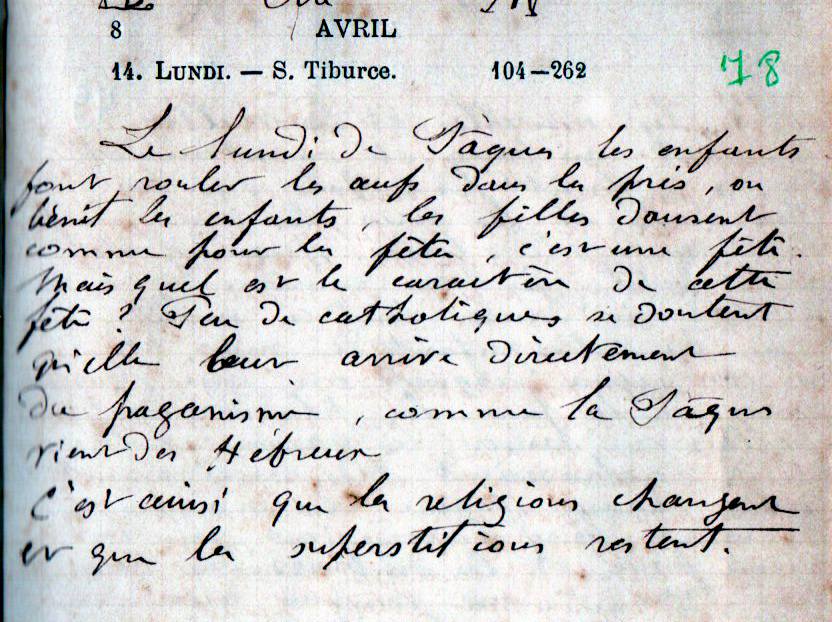 8 AVRIL
14. LUNDI. — S. Tiburce. 104—262
78
Le lundi de Pâques les enfants
font rouler les œufs dans les prés, on
bénit les enfants, les filles dansent
comme pour les fêtes, c'est une fête.
Mais quel est le caractère de cette
fête? Peu de catholiques se doutent
qu'elle leur arrive directement
du paganisme, comme la Pâques
vient des Hébreux
C'est ainsi que les religions changent
et que les superstitions restent.